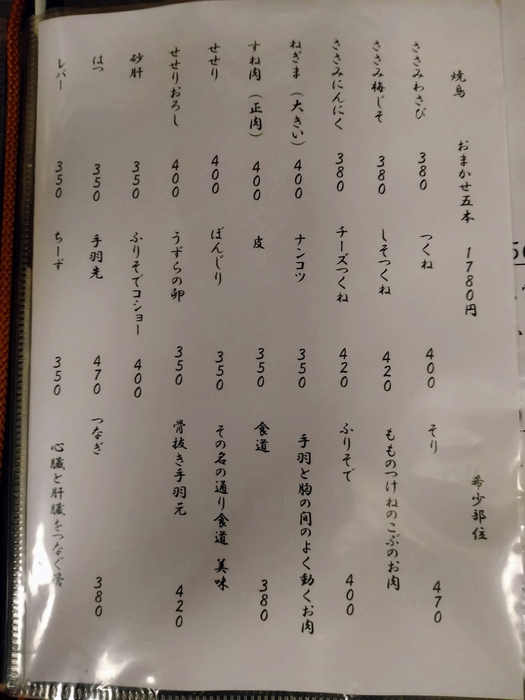 焼鳥 おまかせ五本 1780円
ささみわさび 380
ささみ梅じそ 380
ささみにんにく 380
ねぎま（大きい） 400
すね肉（正肉） 400
せせり 400
せせりおろし 400
砂肝 350
はつ 350
レバー 350
つくね 400
しそつくね 420
チーズつくね 420
ナンコツ 350
皮 350
ぼんじり 350
うずらの卵 350
ふりそでコショー 400
手羽先 470
ちーず 350
希少部位
そり 470
もものつけねのこぶのお肉
ふりそで 400
手羽と胸の間のよく動くお肉
食道 380
その名の通り食道 美味
骨抜き手羽元 420
つなぎ 380
心臓と肝臓をつなぐ管